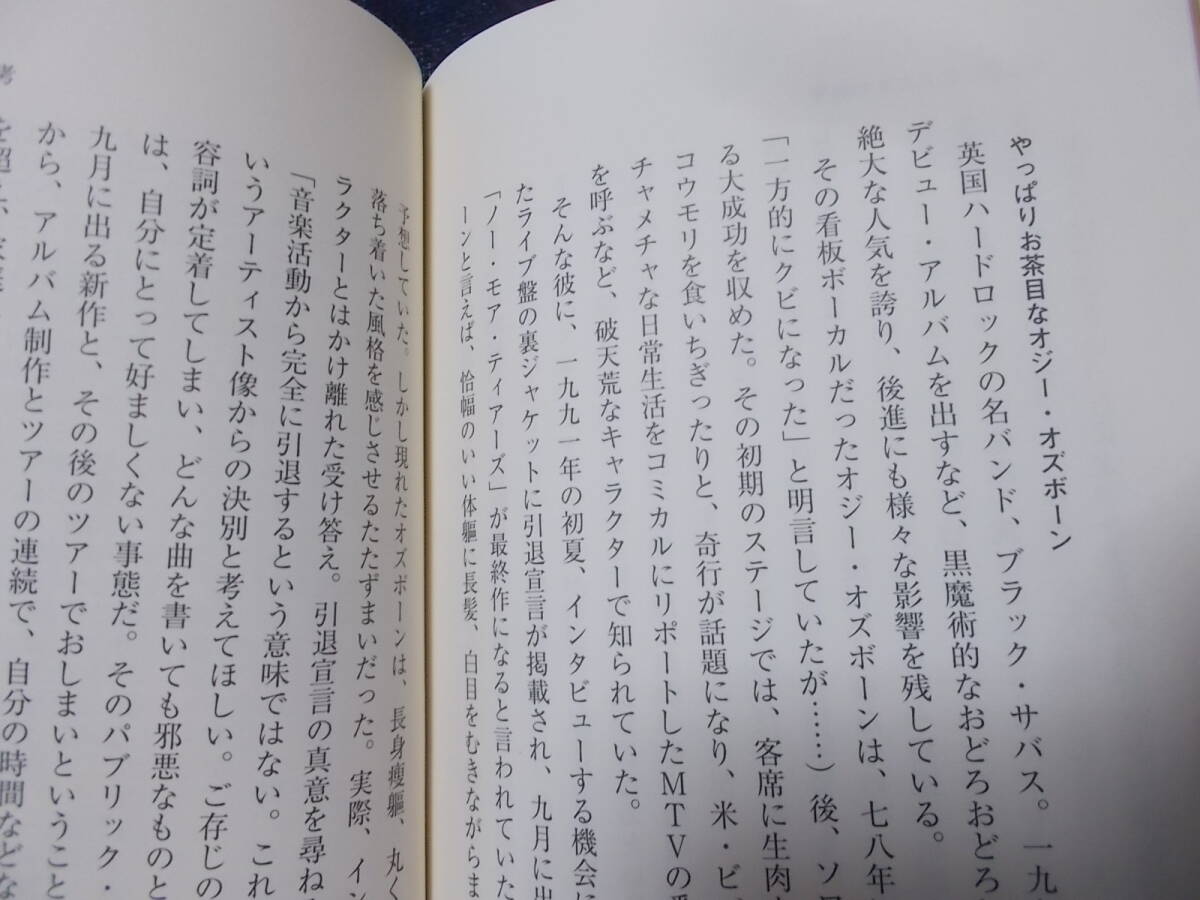 やっぱりお茶目なオジー・オズボーン
英国ハードロックの名バンド、ブラック・サバス。一九
デビュー・アルバムを出すなど、黒魔術的なおどろおどろ
絶大な人気を誇り、後進にも様々な影響を残している。
その看板ボーカルだったオジー・オズボーンは、七八年
「一方的にクビになった」と明言していたが……）後、ソ
る大成功を収めた。その初期のステージでは、客席に生肉
コウモリを食いちぎったりと、奇行が話題になり、米・ビ
チャメチャな日常生活をコミカルにリポートしたMTVの番
を呼ぶなど、破天荒なキャラクターで知られていた。
そんな彼に、一九九一年の初夏、インタビューする機会に
たライブ盤の裏ジャケットに引退宣言が掲載され、九月に出
「ノー・モア・ティアーズ」が最終作になると言われていた
ーンと言えば、恰幅のいい体軀に長髪、白目をむきながらま
予想していた。しかし現れたオズボーンは、長身痩軀、丸く
落ち着いた風格を感じさせるたたずまいだった。実際、イン
ラクターとはかけ離れた受け答え。引退宣言の真意を尋ね
「音楽活動から完全に引退するという意味ではない。これ
いうアーティスト像からの決別と考えてほしい。ご存じの
容詞が定着してしまい、どんな曲を書いても邪悪なものと
は、自分にとって好ましくない事態だ。そのパブリック・
九月に出る新作と、その後のツアーでおしまいということ
から、アルバム制作とツアーの連続で、自分の時間などな
を超え、
考